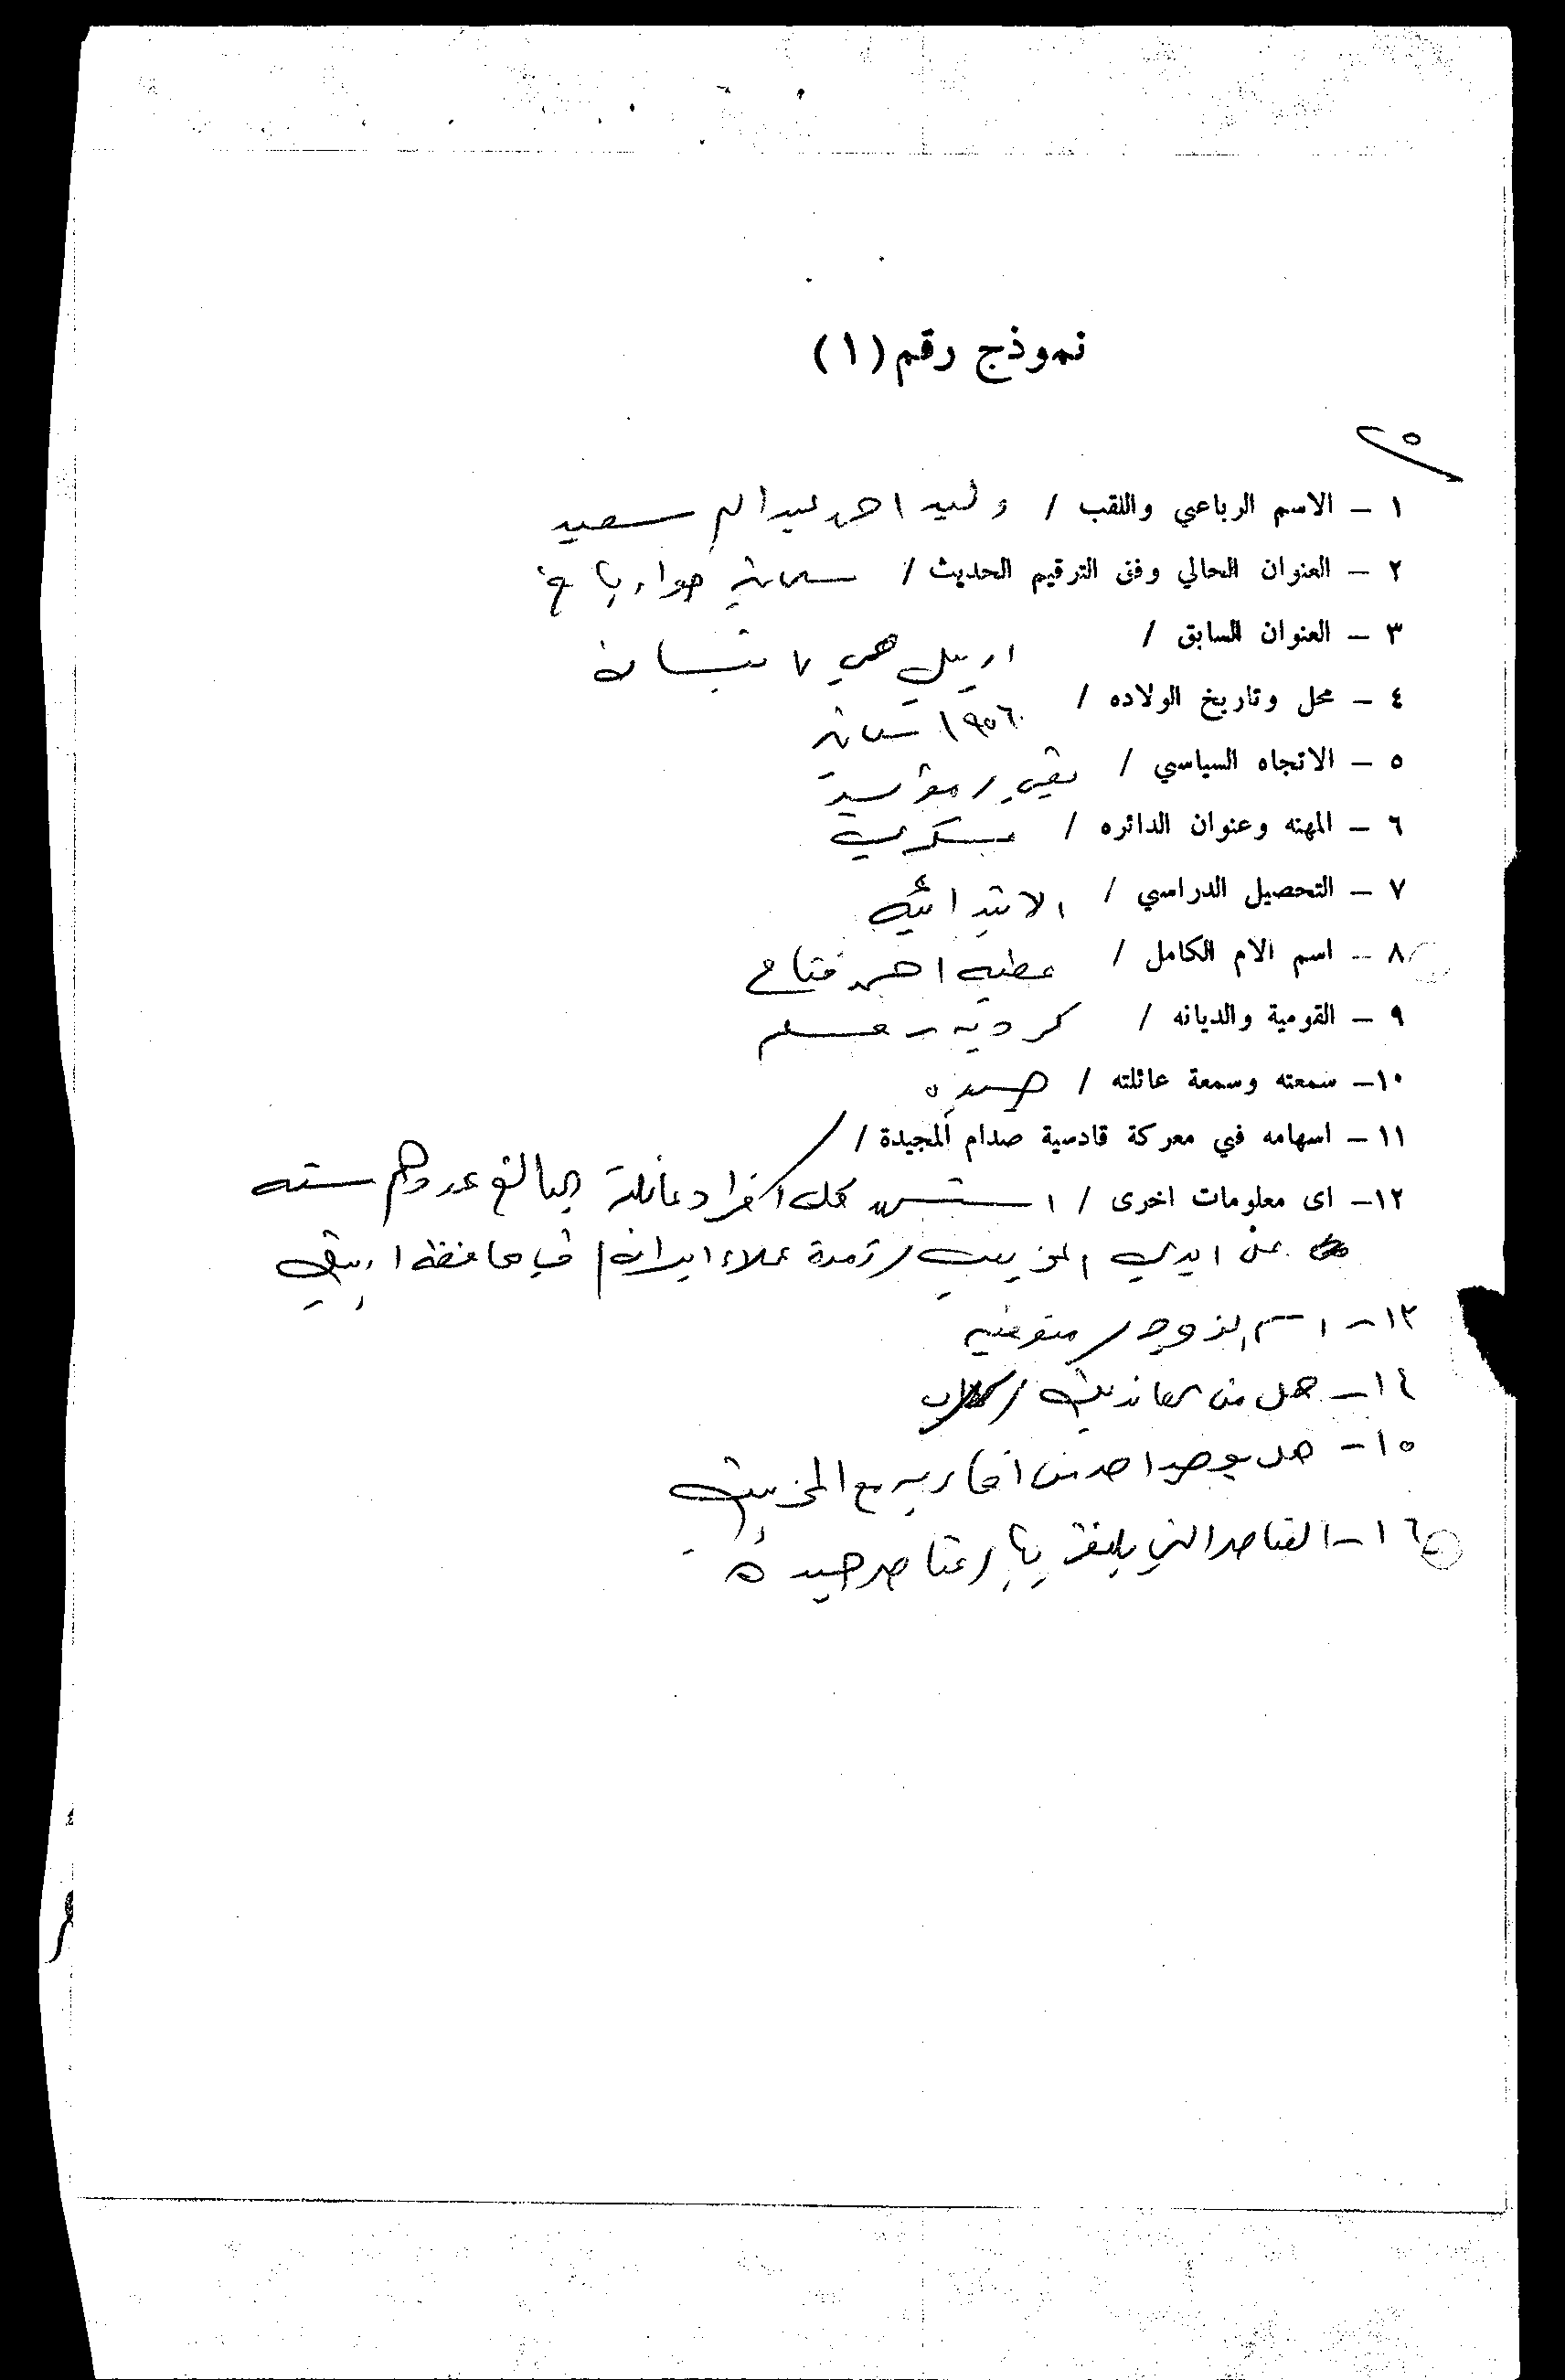 نموذج رقم (١)
٢٥
١ - الاسم الرباعي واللقب / وليد احمد عبدالله سعيد
٢ - العنوان الحالي وفق الترقيم الحديث / سليمانية جوارباغ
٣ - العنوان السابق / اربيل حي ٧ نيسان
٤ - محل وتاريخ الولاده / ١٩٥٦ سليمانية
٥ - الاتجاه السياسي / بعثي / مؤيد
٦ - المهنه وعنوان الدائره / عسكري
٧ - التحصيل الدراسي / الابتدائيه
٨ - اسم الام الكامل / عطيه احمد فتاح
٩ - القومية والديانه / كرديه - مسلم
١٠ - سمعته وسمعة عائلته / جيده
١١ - اسهامه في معركة قادسية صدام المجيدة /
١٢ - اى معلومات اخرى / استشهد كل افراد عائلته البالغ عددهم سته
على ايدي المخربين / زمرة عملاء ايران / في محافظة اربيل
١٣ - اسم الزوجه / متوفيه
١٤ - هل من العائدين / كلا
١٥ - هل يوجد احد من اقاربه مع المخربين
١٦ - العناصر التي يلتقي بها / عناصر جيدة